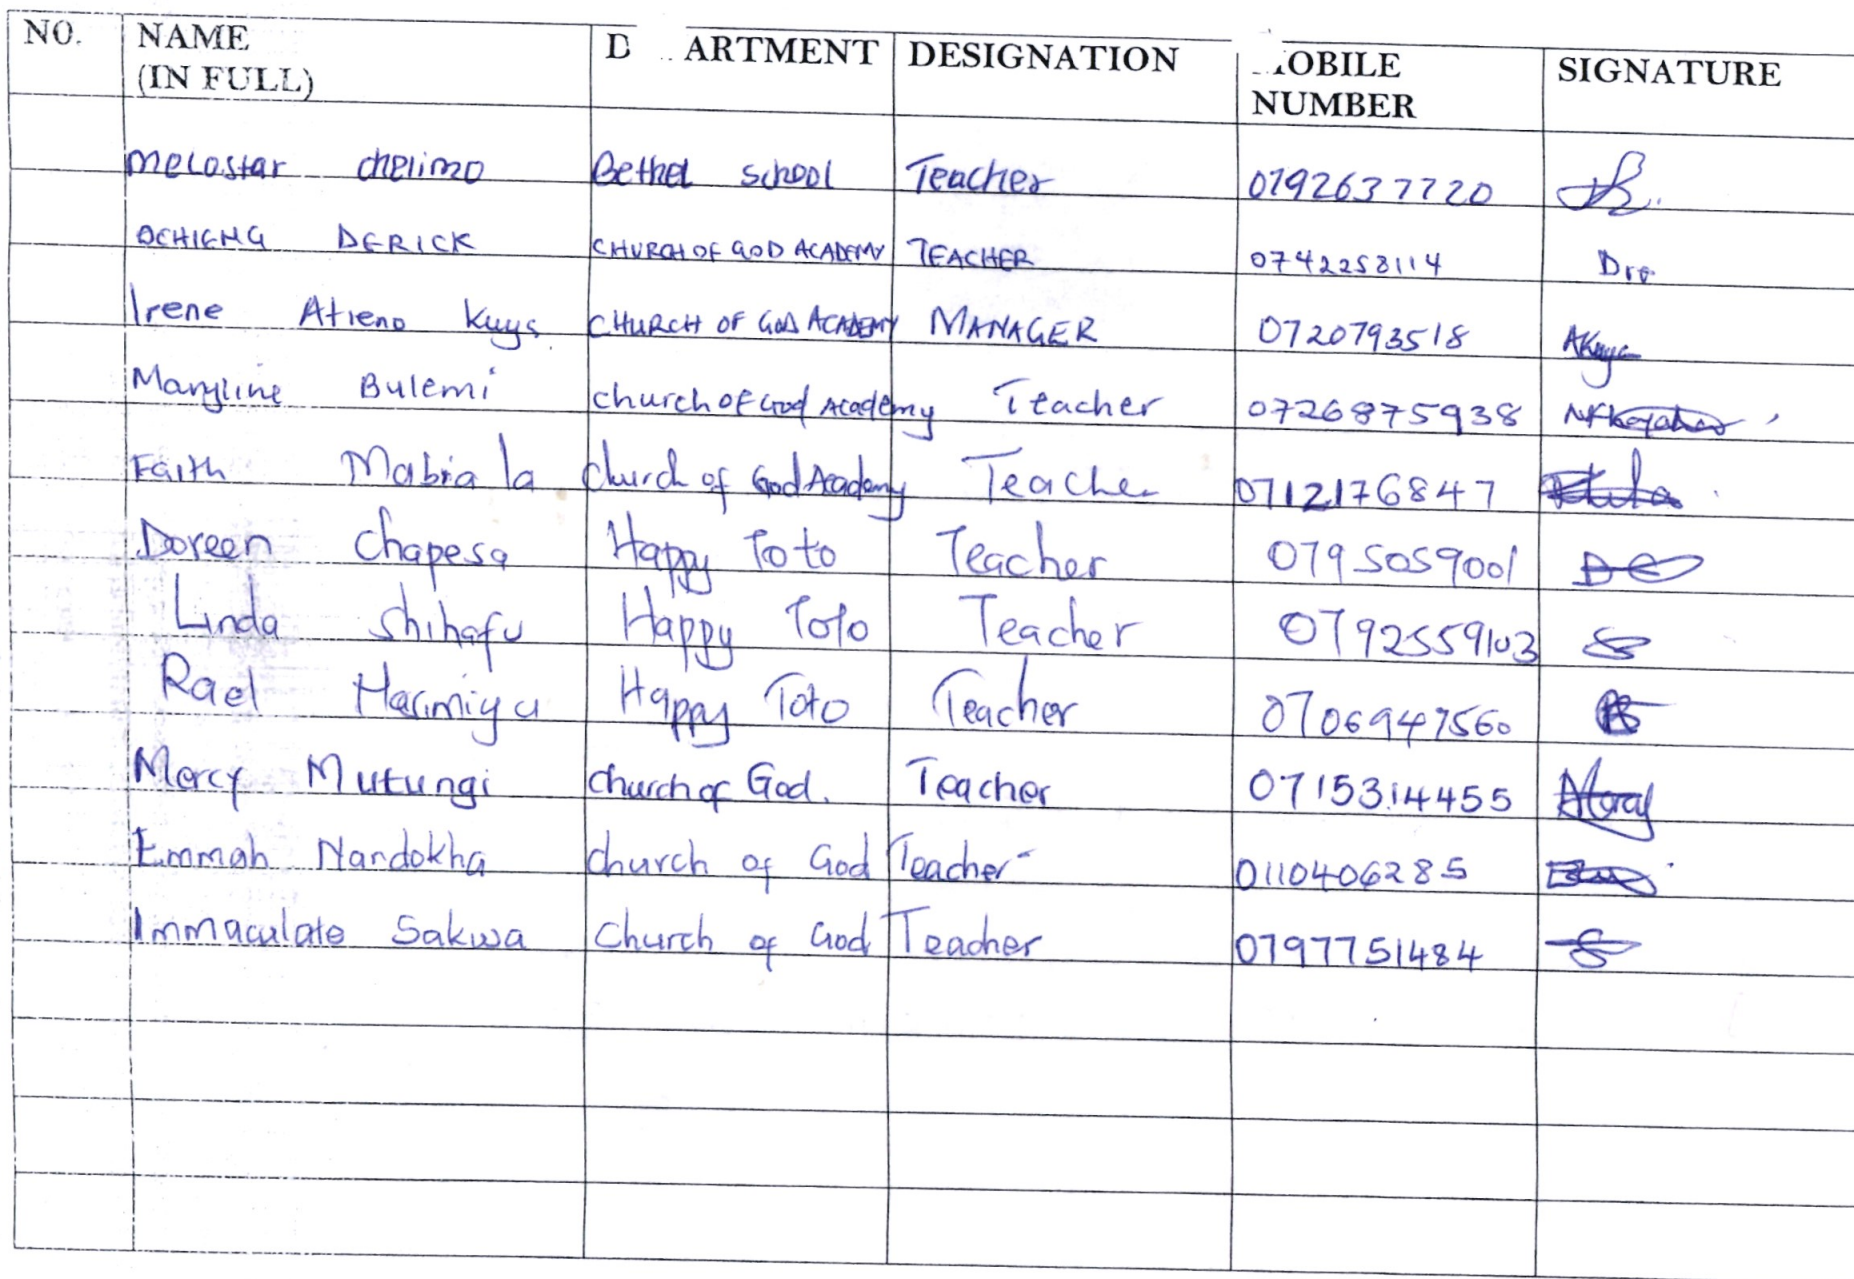 NO. NAME D ARTMENT DESIGNATION OBILE SIGNATURE
(IN FULL) NUMBER
Melostar chelimo Bethel school Teacher 0792637720
OCHIENG DERICK CHURCH OF GOD ACADEMY TEACHER 0742258114 Dre
Irene Atieno Kuya CHURCH OF GOD ACADEMY MANAGER 0720793518 AKuya
Maryline Bulemi church of God Academy Teacher 0726875938
Faith Mabia la church of God Academy Teacher 0712176847
Doreen Chapesa Happy Toto Teacher 0795059001
Linda Shihafu Happy Toto Teacher 0792559103
Rael Happy Toto Teacher 0706947560
Mercy Mutungi church of God. Teacher 0715314455
Emmah Nandokha church of God Teacher 0110406285
Immaculate Sakwa church of God Teacher 0797751484